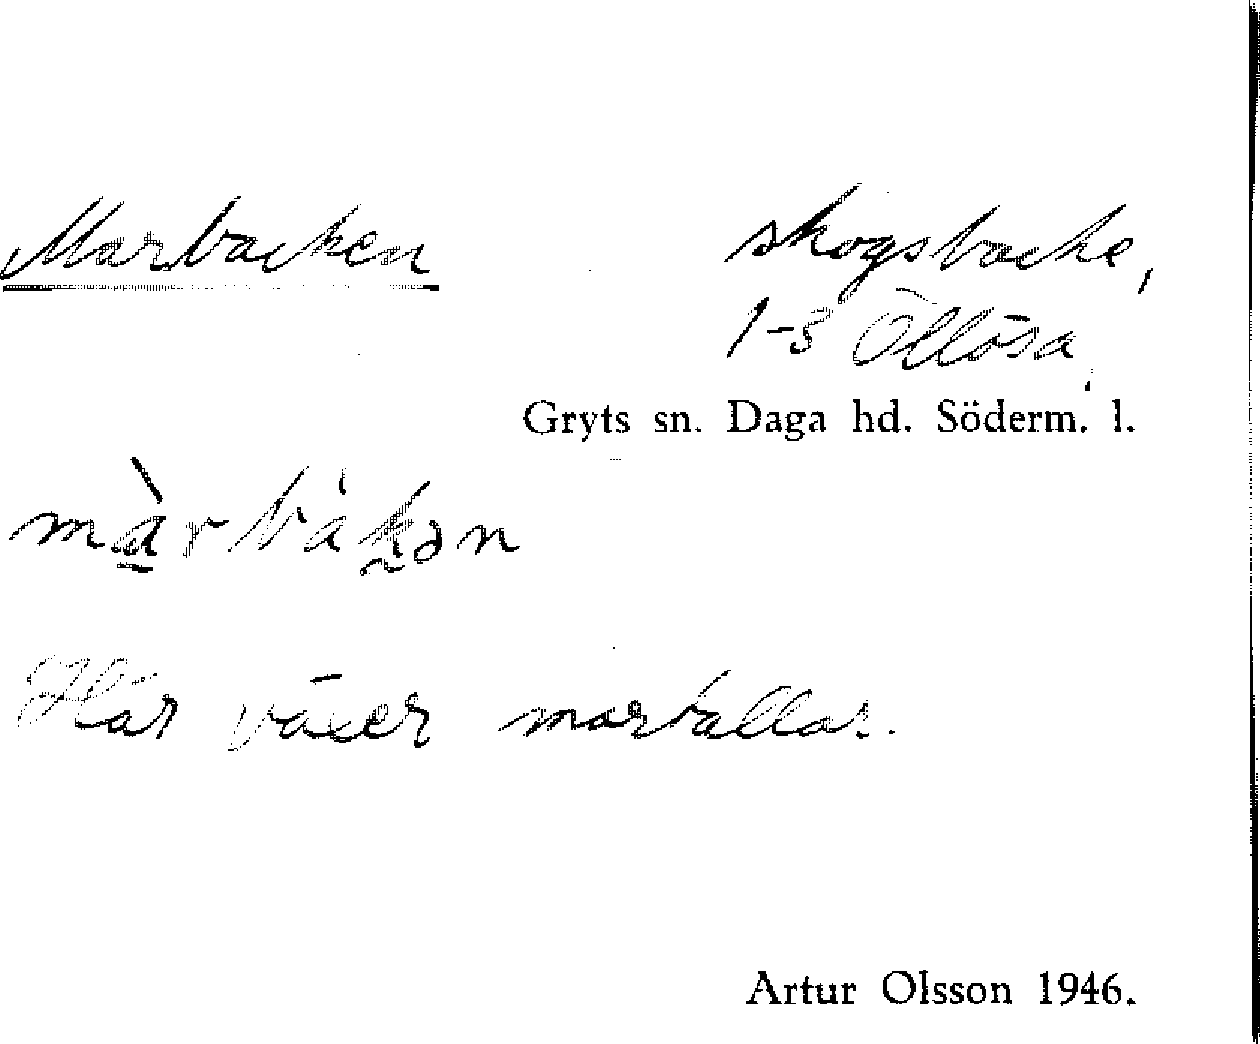 Marbacken
skogsbacke,
1-3 Öllösa,
Gryts sn. Daga hd. Söderm. l.
màrbàkən
Här växer martallar.
Artur Olsson 1946.